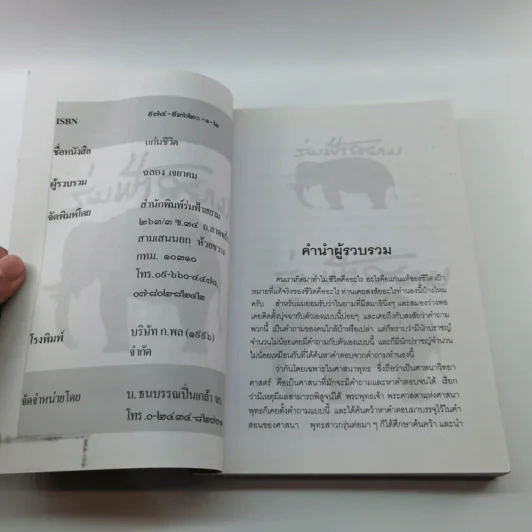 ISBN ๙๗๔-๙๓๖๒๐-๑-๒
ชื่อหนังสือ แก่นชีวิต
ผู้รวบรวม ฉลอง เจยาคม
จัดพิมพ์โดย สำนักพิมพ์ร่มฟ้าสยาม
๒๖๓/๓ ซ.๓๔ ถ.ลาดพร้าว
สามเสนนอก ห้วยขวาง
กทม. ๑๐๓๑๐
โทร.๐๙-๖๖๐-๔๔๗๐,
๐๗-๘๐๒-๘๒๔๒
โรงพิมพ์ บริษัท ก.พล (๑๙๙๖)
จำกัด
จัดจำหน่ายโดย บ. ธนบรรณปิ่นเกล้า
โทร.๐-๒๔๓๔-๘๒๗๐
ร่มฟ้าสยาม
คำนำผู้รวบรวม
คนเราเกิดมาทำไม ชีวิตคืออะไร อะไรคือแก่นแท้ของชีวิต เป้า
หมายที่แท้จริงของชีวิตคืออะไร ท่านเคยสงสัยอะไรทำนองนี้บ้างไหม
ครับ สำหรับผมยอมรับว่าในยามที่มีสมาธินิ่งๆ และสมองว่างพอ
เคยคิดตั้งปุจฉากับตัวเองแบบนี้บ่อยๆ และเคยถึงกับสงสัยว่าคำถาม
พวกนี้ เป็นคำถามของคนใกล้บ้าหรือเปล่า แต่ก็ทราบว่ามีนักปราชญ์
จำนวนไม่น้อยเคยมีคำถามกับตัวเองแบบนี้ และก็มีนักปราชญ์จำนวน
ไม่น้อยเหมือนกันที่ได้ค้นหาคำตอบจากคำถามทำนองนี้
ว่ากันโดยเฉพาะในศาสนาพุทธ ซึ่งถือว่าเป็นศาสนาวิทยา
ศาสตร์ คือเป็นศาสนาที่มักจะมีคำถามและหาคำตอบจนได้ เรียก
ว่ามีเหตุมีผลสามารถพิสูจน์ได้ พระพุทธเจ้า พระศาสดาแห่งศาสนา
พุทธก็เคยตั้งคำถามแบบนี้ และได้ค้นคว้าหาคำตอบมาบรรจุไว้ในคำ
สอนของศาสนา พุทธสาวกรุ่นต่อมา ๆ ก็ได้ศึกษาค้นคว้า และนำ